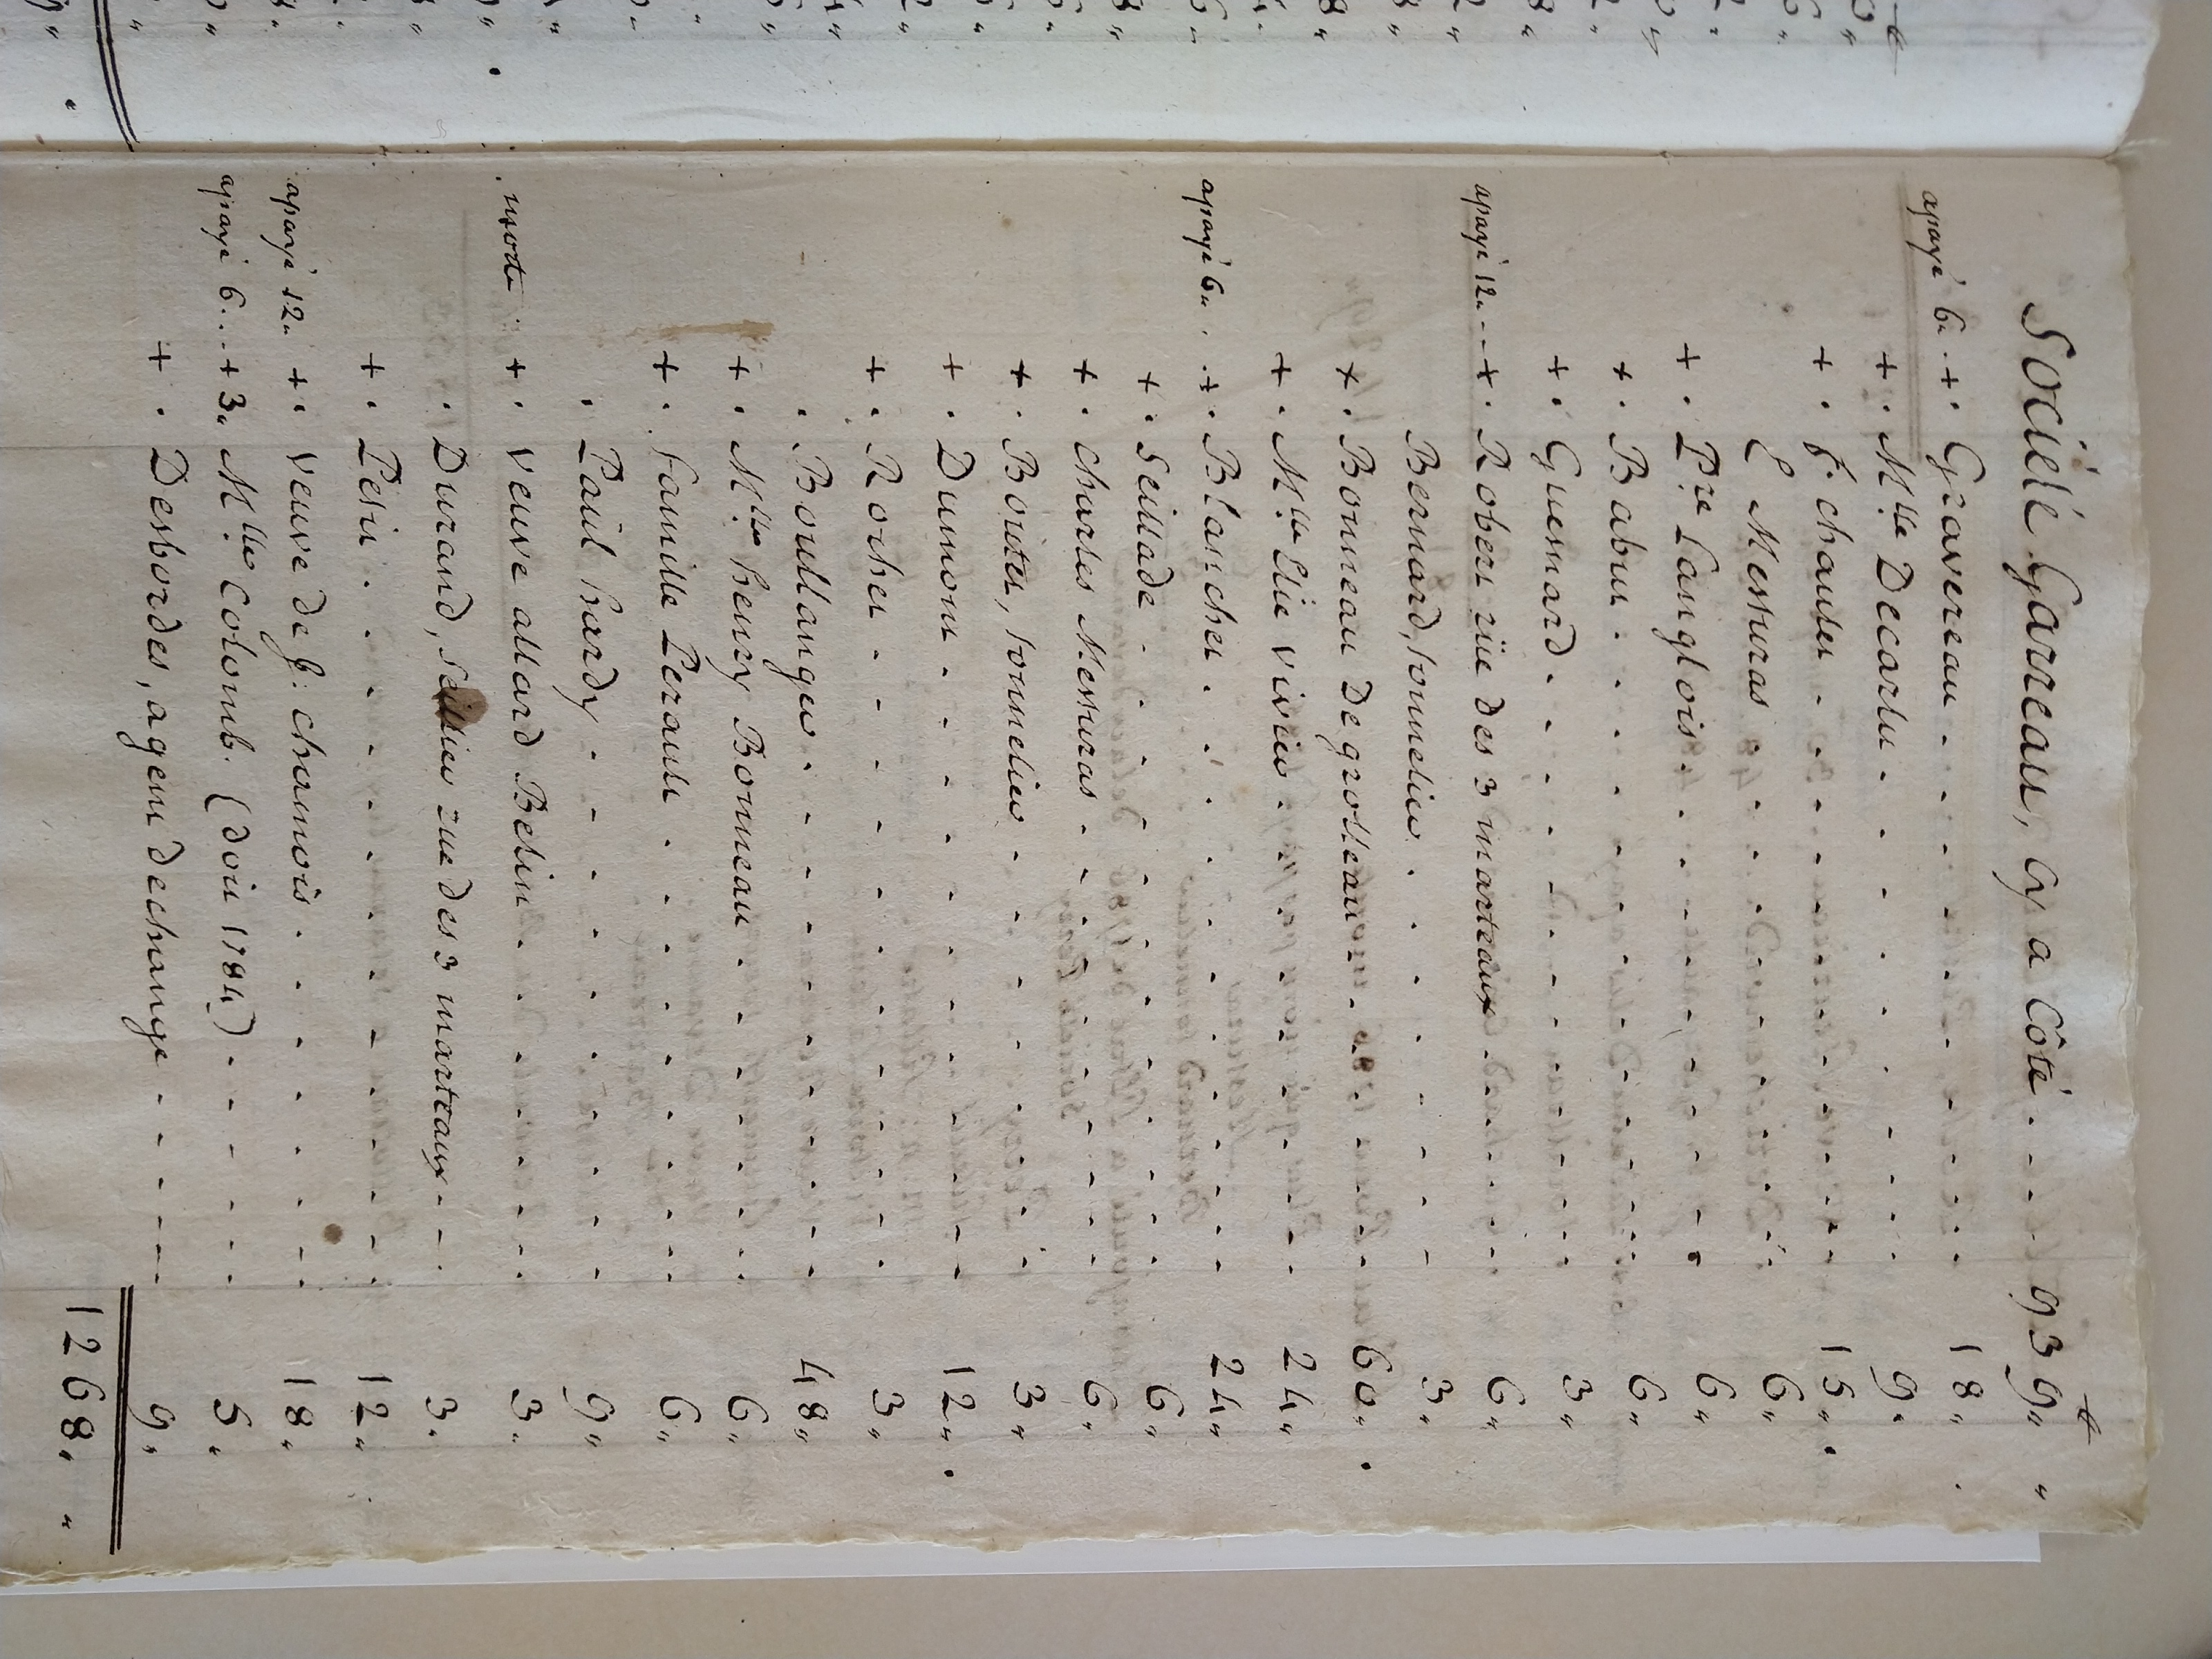 Société Garreau, Cy a Côté . . . 939 " "
apayé 6. . + . Gravereau . . . 18 "
+ . M.lle Decartu . . . 9 .
+ . f. chauvin . . . 15 " .
E Messuras . . . 6 "
+ . Pre Langlois . . . 6 "
+ . Babut . . . 6 "
+ . Guesnard . . . 3 "
apayé 12 " . . + . Robert rüe des 3 marteaux . . . 6 "
Bernard, Tonnelier . . . 3 "
+ . Bonneau Degrolleau . . . 60 " .
+ . M.lle Elie vivier . . . 24 "
apayé 6 " . + . Blanchet . . . 24 "
+ . Seillade . . . 6 "
+ . Charles Messuras . . . 6 "
+ . Boutet, Tonnelier . . . 3 "
+ . Dumont . . . 12 " .
+ . Rocher . . . 3 "
. Boullanger . . . 48 "
+ . M.lles henry Bonneau . . . 6 "
+ . famille Perault . . . 6 "
. Paul hardy . . . 9 "
. morte + . Veuve allard Belin . . . 3 "
. Durand, Sellier rue des 3 marteaux . . . 3 .
+ . Petit . . . 12 "
apayé 12 " + . Veuve de f: chamois . . . 18 "
apayé 6 . . . + 3 " M.lle Colomb. (doit 1784) . . . 5 "
+ . Desbordes, agent dechange . . . 9 "
1268 " "